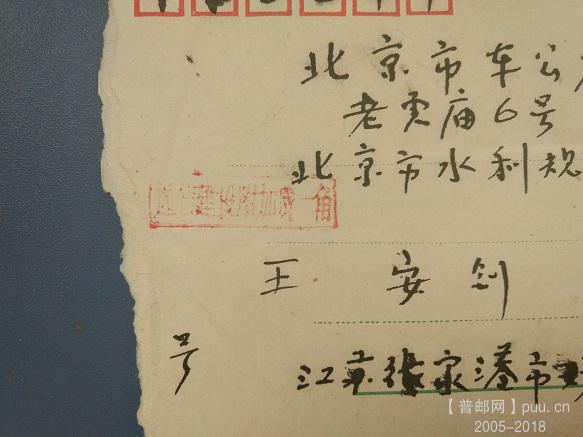 北京市车公
老虎庙6号
北京市水利规
建设附加费一角
王安剑
号
江京张家港市
【普邮网】puu.cn
2005-2018